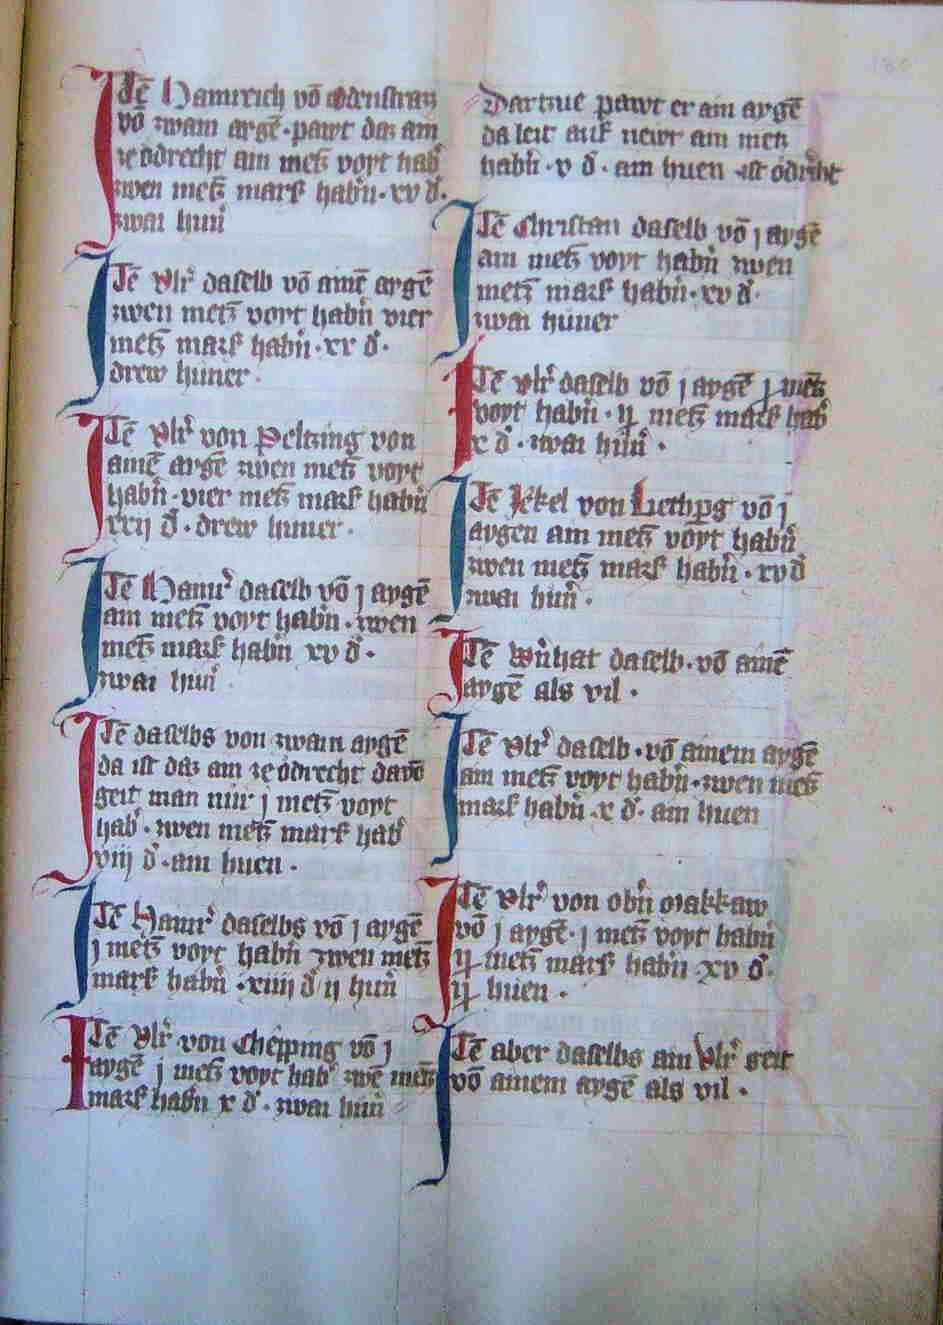 ITē Hainreich vō Odenstraz
vō zwain aigē · pawt daz ain
ze ödrecht ain metz voyt hab̄
zwen metz̄ mark habn̄ · xv d̄ ·
zwai hun̄
ITē Vlr̄ daselb vō ainē aigē
zwen metz̄ voyt habn̄ vier
metz̄ mark habn̄ · xx d̄ ·
drew hüner ·
ITē Vlr̄ von Peltzing von
ainē aigē zwen metz̄ voyt
habn̄ · vier metz̄ mark habn̄
xxij d̄ · drew huner ·
ITē Hainr̄ daselb vō j aygē
ain metz̄ voyt habn̄ · zwen
metz̄ mark habn̄ xv d̄ ·
zwai hun̄
ITē daselbs von zwain aygē
da ist daz ain ze ödrecht davō
geit man nur j metz̄ voyt
hab̄ · zwen metz̄ mark hab̄
viij d̄ · ain huen ·
ITē Hainr̄ daselbs vō j aygē
j metz̄ voyt habn̄ zwen metz̄
mark habn̄ · xiiij d̄ ij hun̄
ITē Vlr̄ von Chepping vō j
aygē j metz̄ voyt hab̄ zwē metz̄
mark habn̄ x d̄ · zwai hun̄
Dartzue pawt er ain aygē
da leit auf newr ain metz̄
habn̄ · v d̄ · ain huen ist ödrecht
ITē Christan daselb vō j aygē
ain metz̄ voyt habn̄ zwen
metz̄ mark habn̄ · xv d̄ ·
zwai hüner
ITē vlr̄ daselb vō j aygē j metz̄
voyt habn̄ · ij metz̄ mark hab̄
x d̄ · zwai hün̄ ·
ITē Jekel von Luthp̄g vō j
aygen ain metz̄ voyt habn̄
zwen metz̄ mark habn̄ · xv d̄
zwai hun̄ ·
ITē daselb · vō ainē
aygē als vil ·
ITē Vlr̄ daselb · vō ainem aygē
ain metz̄ voyt habn̄ · zwen metz̄
mark habn̄ · x d̄ · ain huen
ITē Vlr̄ von obn̄ Makkaw
vō j aygē · j metz̄ voyt habn̄
ij metz̄ mark habn̄ · xv d̄ ·
ij huen ·
ITē aber daselbs ain Vlr̄ geit
vō ainem aygē als vil ·